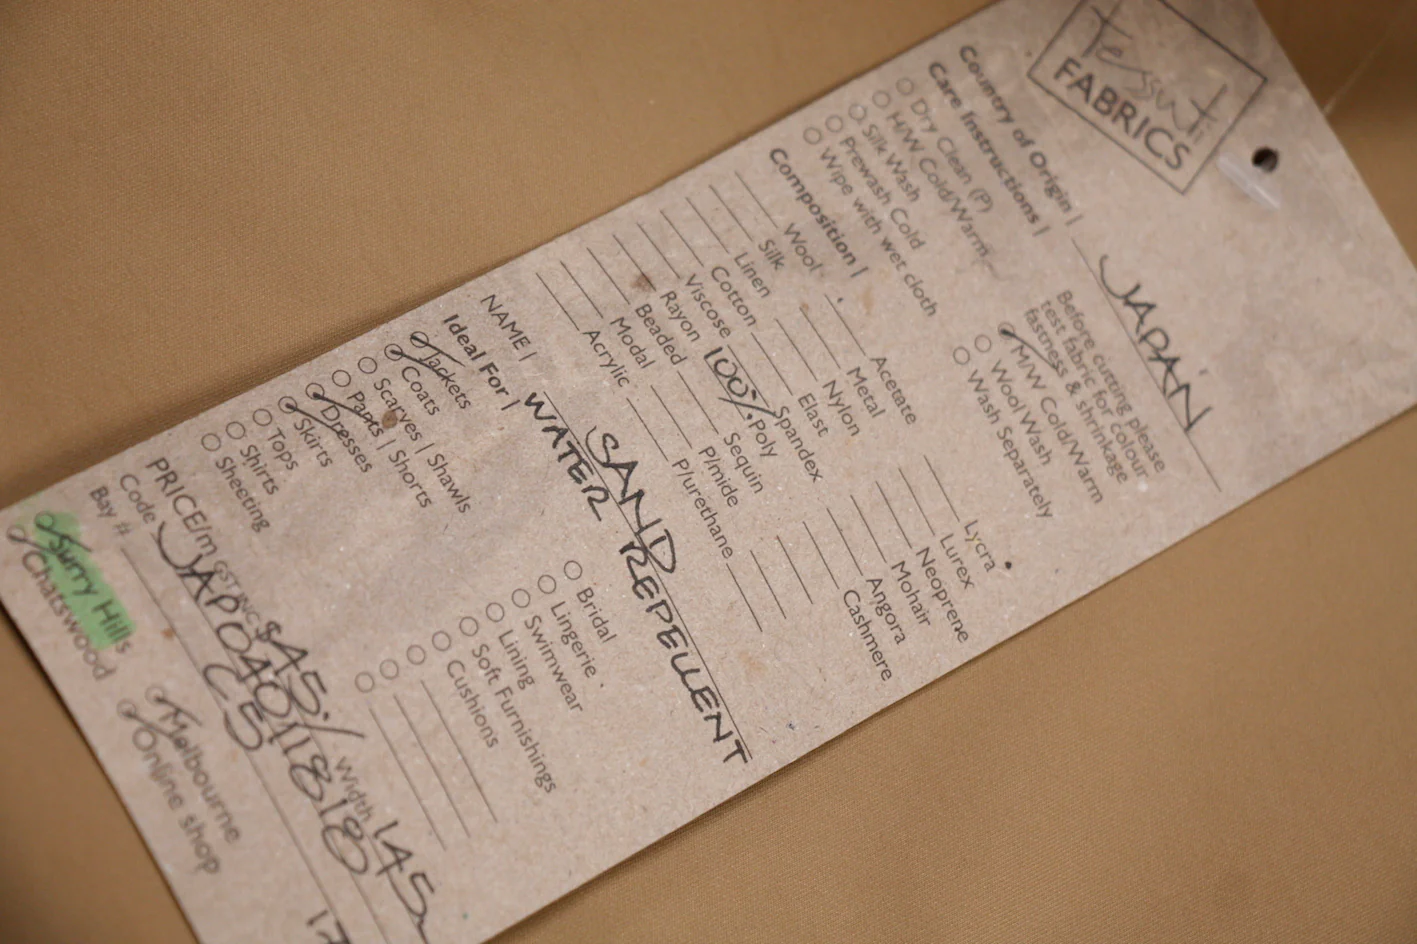 Tessuti
FABRICS
Country of Origin | JAPAN
Care Instructions |
Dry Clean (P)
H/W Cold/Warm
Silk Wash
Prewash Cold
Wipe with wet cloth
Before cutting please
test fabric for colour
fastness & shrinkage
M/W Cold/Warm
Wool Wash
Wash Separately
Composition |
Wool
Silk
Linen
Cotton
Viscose
Rayon
Beaded
Modal
Acrylic
Acetate
Metal
Nylon
Elast
Spandex
100% Poly
Sequin
P/mide
P/urethane
Lycra
Lurex
Neoprene
Mohair
Angora
Cashmere
NAME | SAND
WATER REPELLENT
Ideal For |
Jackets
Coats
Scarves | Shawls
Pants | Shorts
Dresses
Skirts
Tops
Shirts
Sheeting
Bridal
Lingerie
Swimwear
Lining
Soft Furnishings
Cushions
PRICE/m GST INC $45./ Width 145
Code JAP04011818
Bay # C5
Surry Hills
Chatswood
Melbourne
Online shop